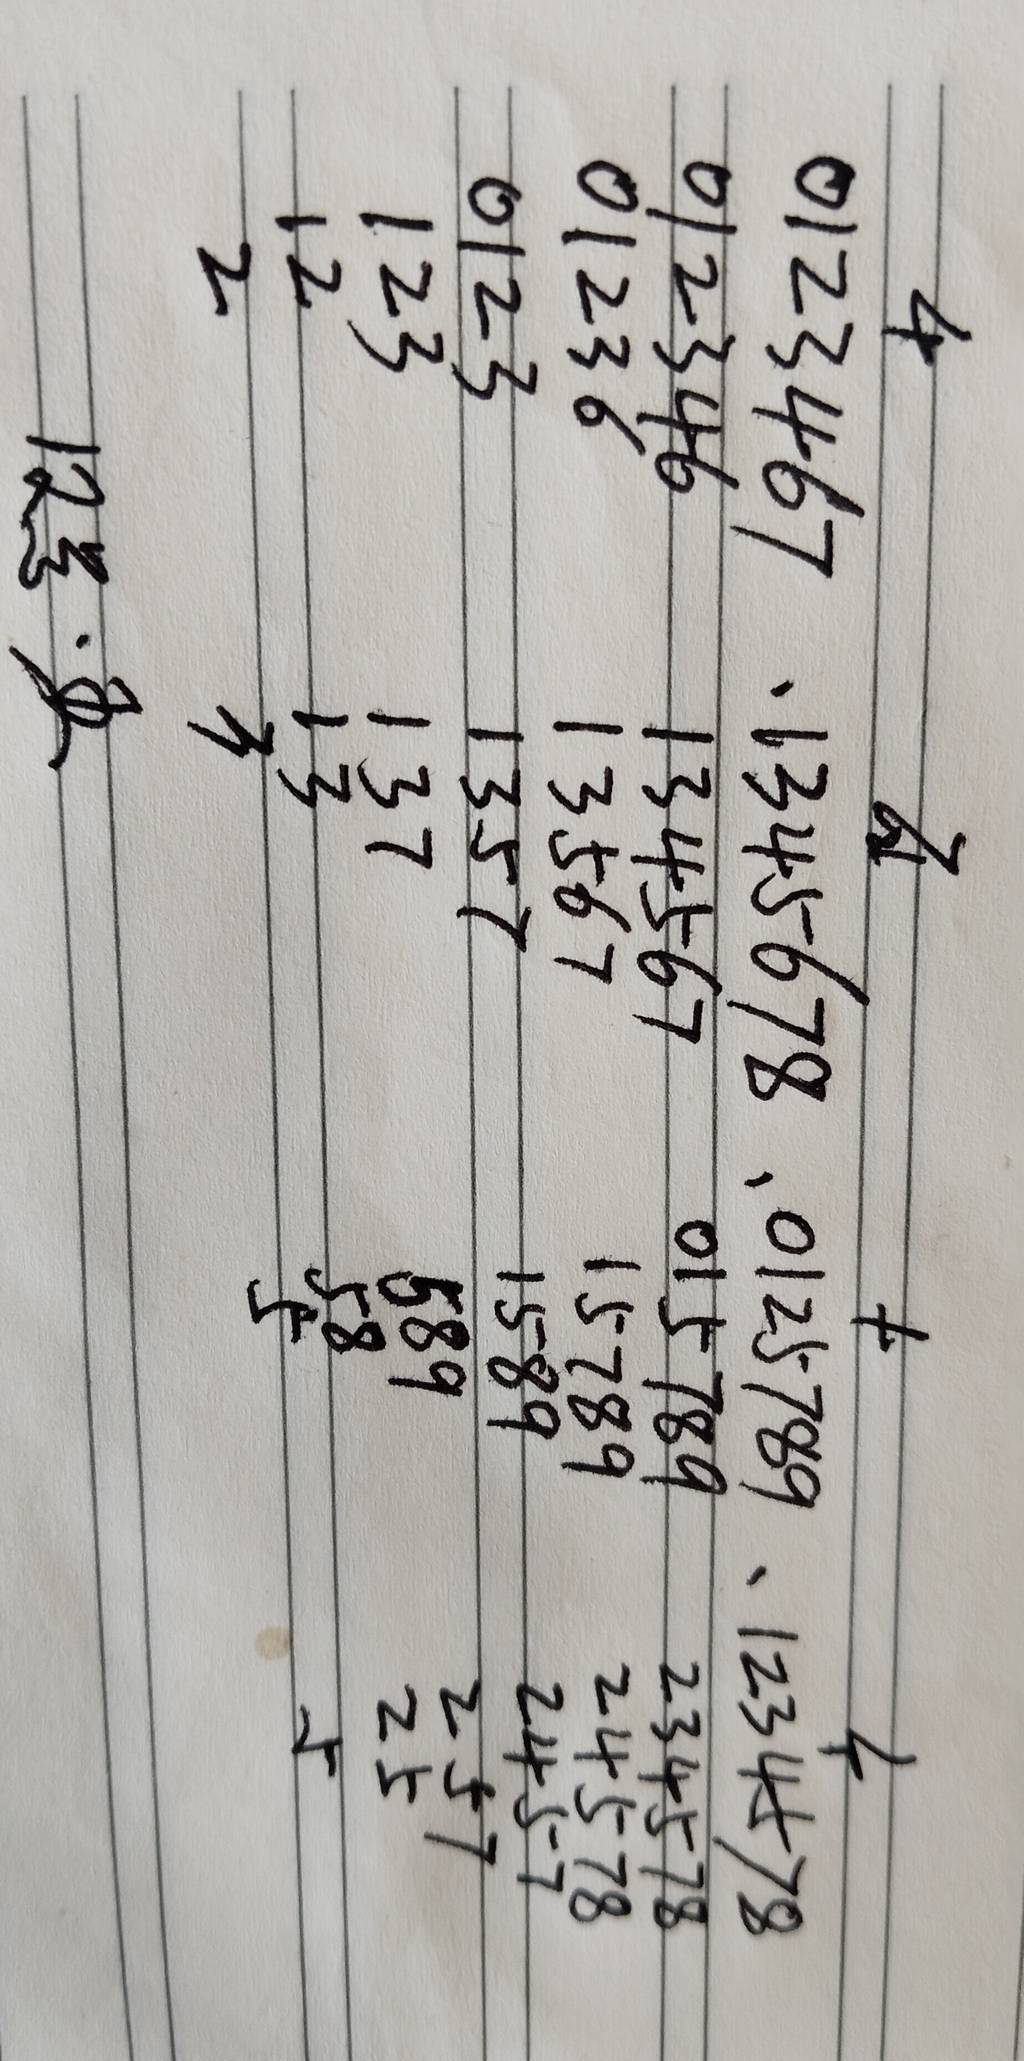 千 百 十 个
0123467、1345678、0125789、1234578
012346 134567 015789 234578
01236 13567 15789 24578
0123 1357 1589 2457
123 137 589 257
12 13 58 25
2 3 5 5
123